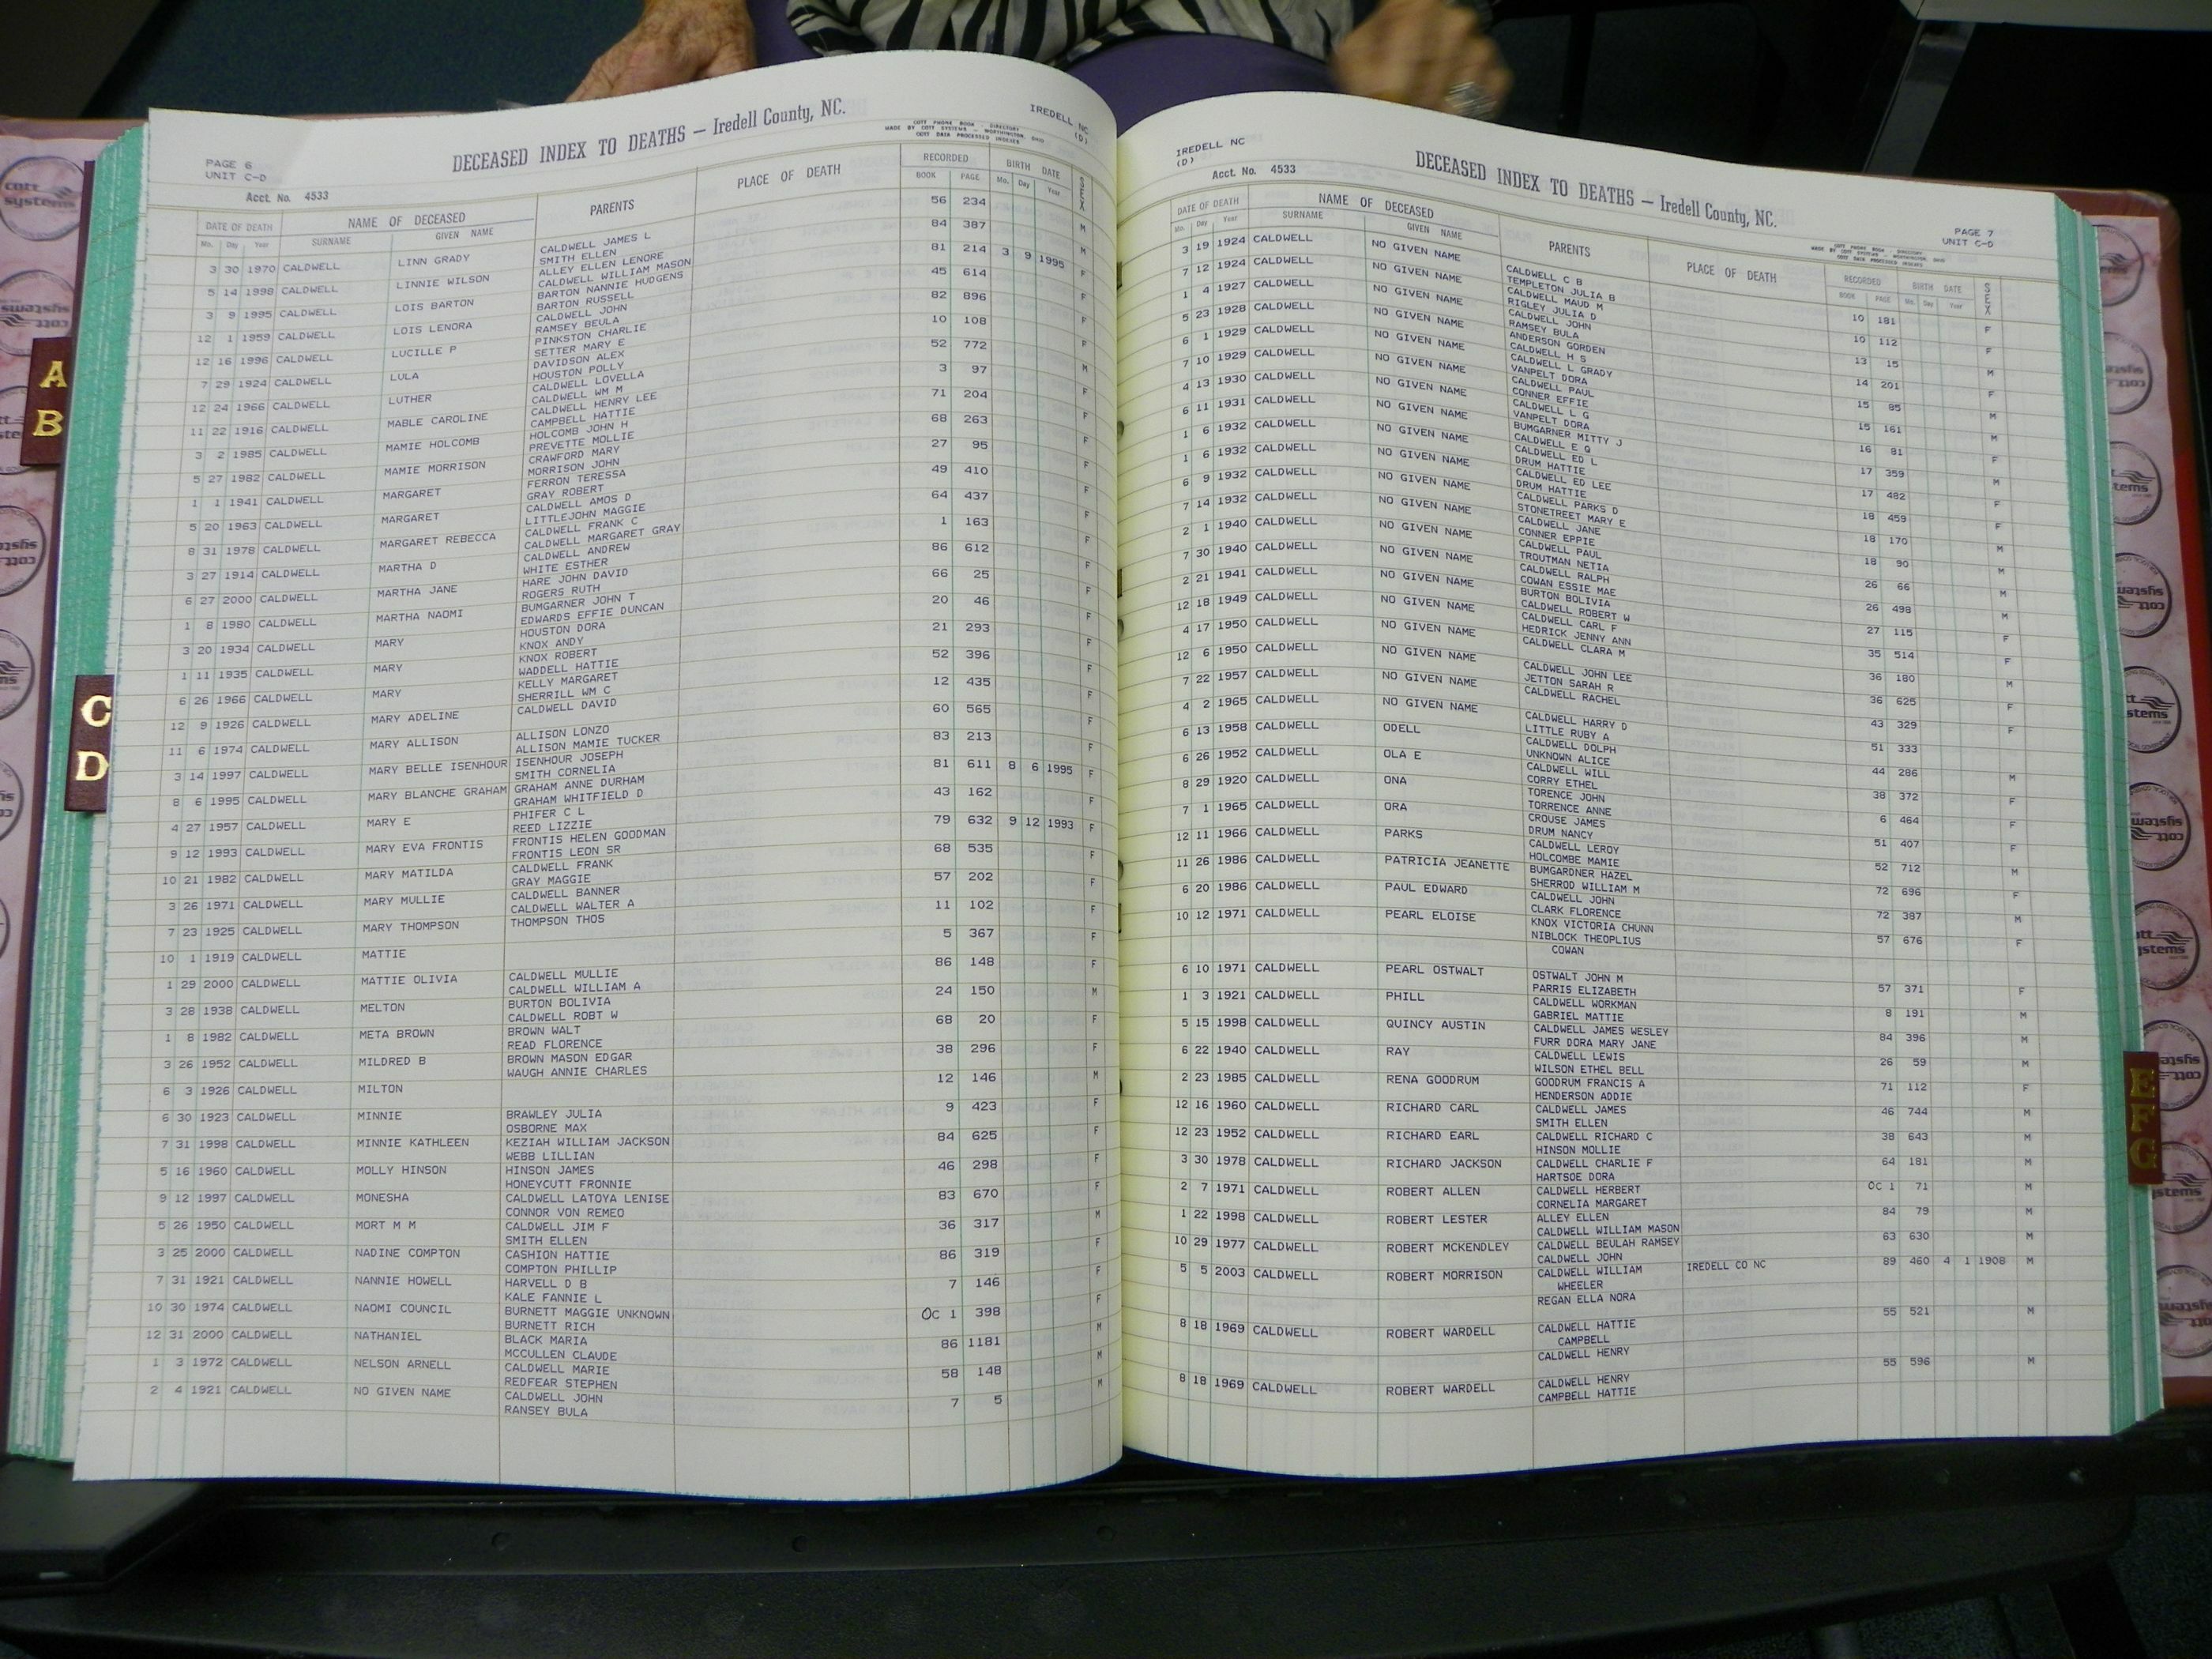 DECEASED INDEX TO DEATHS — Iredell County, NC.
IREDELL NC
(D)
COTT PHONE BOOK - DIRECTORY
MADE BY COTT SYSTEMS - WORTHINGTON, OHIO
COTT DATA PROCESSED INDEXES
PAGE 6
UNIT C-D
Acct. No. 4533
DATE OF DEATH NAME OF DECEASED PARENTS PLACE OF DEATH RECORDED BIRTH DATE SEX
Mo. Day Year SURNAME GIVEN NAME BOOK PAGE Mo. Day Year
3 30 1970 CALDWELL LINN GRADY CALDWELL JAMES L 56 234 M
SMITH ELLEN
5 14 1998 CALDWELL LINNIE WILSON ALLEY ELLEN LENORE 84 387 M
CALDWELL WILLIAM MASON
3 9 1995 CALDWELL LOIS BARTON BARTON NANNIE HUDGENS 81 214 3 9 1995 F
BARTON RUSSELL
12 1 1959 CALDWELL LOIS LENORA CALDWELL JOHN 45 614 F
RAMSEY BEULA
12 16 1996 CALDWELL LUCILLE P PINKSTON CHARLIE 82 896 F
SETTER MARY E
7 29 1924 CALDWELL LULA DAVIDSON ALEX 10 108 F
HOUSTON POLLY
12 24 1966 CALDWELL LUTHER CALDWELL LOVELLA 52 772 M
CALDWELL WM M
11 22 1916 CALDWELL MABLE CAROLINE CALDWELL HENRY LEE 3 97 F
CAMPBELL HATTIE
3 2 1985 CALDWELL MAMIE HOLCOMB HOLCOMB JOHN H 71 204 F
PREVETTE MOLLIE
5 27 1982 CALDWELL MAMIE MORRISON CRAWFORD MARY 68 263 F
MORRISON JOHN
1 1 1941 CALDWELL MARGARET FERRON TERESSA 27 95 F
GRAY ROBERT
5 20 1963 CALDWELL MARGARET CALDWELL AMOS D 49 410 F
LITTLEJOHN MAGGIE
8 31 1978 CALDWELL MARGARET REBECCA CALDWELL FRANK C 64 437 F
CALDWELL MARGARET GRAY
3 27 1914 CALDWELL MARTHA D CALDWELL ANDREW 1 163 F
WHITE ESTHER
6 27 2000 CALDWELL MARTHA JANE HARE JOHN DAVID 86 612 F
ROGERS RUTH
1 8 1980 CALDWELL MARTHA NAOMI BUMGARNER JOHN T 66 25 F
EDWARDS EFFIE DUNCAN
3 20 1934 CALDWELL MARY HOUSTON DORA 20 46 F
KNOX ANDY
1 11 1935 CALDWELL MARY KNOX ROBERT 21 293 F
WADDELL HATTIE
6 26 1966 CALDWELL MARY KELLY MARGARET 52 396 F
SHERRILL WM C
12 9 1926 CALDWELL MARY ADELINE CALDWELL DAVID 12 435 F
11 6 1974 CALDWELL MARY ALLISON ALLISON LONZO 60 565 F
ALLISON MAMIE TUCKER
3 14 1997 CALDWELL MARY BELLE ISENHOUR ISENHOUR JOSEPH 83 213 F
SMITH CORNELIA
8 6 1995 CALDWELL MARY BLANCHE GRAHAM GRAHAM ANNE DURHAM 81 611 8 6 1995 F
GRAHAM WHITFIELD D
4 27 1957 CALDWELL MARY E PHIFER C L 43 162 F
REED LIZZIE
9 12 1993 CALDWELL MARY EVA FRONTIS FRONTIS HELEN GOODMAN 79 632 9 12 1993 F
FRONTIS LEON SR
10 21 1982 CALDWELL MARY MATILDA CALDWELL FRANK 68 535 F
GRAY MAGGIE
3 26 1971 CALDWELL MARY MULLIE CALDWELL BANNER 57 202 F
CALDWELL WALTER A
7 23 1925 CALDWELL MARY THOMPSON THOMPSON THOS 11 102 F
10 1 1919 CALDWELL MATTIE 5 367 F
1 29 2000 CALDWELL MATTIE OLIVIA CALDWELL MULLIE 86 148 F
CALDWELL WILLIAM A
3 28 1938 CALDWELL MELTON BURTON BOLIVIA 24 150 M
CALDWELL ROBT W
1 8 1982 CALDWELL META BROWN BROWN WALT 68 20 F
READ FLORENCE
3 26 1952 CALDWELL MILDRED B BROWN MASON EDGAR 38 296 F
WAUGH ANNIE CHARLES
6 3 1926 CALDWELL MILTON 12 146 M
6 30 1923 CALDWELL MINNIE BRAWLEY JULIA 9 423 F
OSBORNE MAX
7 31 1998 CALDWELL MINNIE KATHLEEN KEZIAH WILLIAM JACKSON 84 625 F
WEBB LILLIAN
5 16 1960 CALDWELL MOLLY HINSON HINSON JAMES 46 298 F
HONEYCUTT FRONNIE
9 12 1997 CALDWELL MONESHA CALDWELL LATOYA LENISE 83 670 F
CONNOR VON REMEO
5 26 1950 CALDWELL MORT M M CALDWELL JIM F 36 317 M
SMITH ELLEN
3 25 2000 CALDWELL NADINE COMPTON CASHION HATTIE 86 319 F
COMPTON PHILLIP
7 31 1921 CALDWELL NANNIE HOWELL HARVELL D B 7 146 F
KALE FANNIE L
10 30 1974 CALDWELL NAOMI COUNCIL BURNETT MAGGIE UNKNOWN OC 1 398 F
BURNETT RICH
12 31 2000 CALDWELL NATHANIEL BLACK MARIA 86 1181 M
MCCULLEN CLAUDE
1 3 1972 CALDWELL NELSON ARNELL CALDWELL MARIE 58 148 M
REDFEAR STEPHEN
2 4 1921 CALDWELL NO GIVEN NAME CALDWELL JOHN 7 5 M
RANSEY BULA
IREDELL NC
(D)
Acct. No. 4533
DECEASED INDEX TO DEATHS — Iredell County, NC.
COTT PHONE BOOK - DIRECTORY
MADE BY COTT SYSTEMS - WORTHINGTON, OHIO
COTT DATA PROCESSED INDEXES
PAGE 7
UNIT C-D
DATE OF DEATH NAME OF DECEASED PARENTS PLACE OF DEATH RECORDED BIRTH DATE SEX
Mo. Day Year SURNAME GIVEN NAME BOOK PAGE Mo. Day Year
3 19 1924 CALDWELL NO GIVEN NAME CALDWELL C B 10 181 F
TEMPLETON JULIA B
7 12 1924 CALDWELL NO GIVEN NAME CALDWELL MAUD M 10 112 F
RIGLEY JULIA D
1 4 1927 CALDWELL NO GIVEN NAME CALDWELL JOHN 13 15 M
RAMSEY BULA
5 23 1928 CALDWELL NO GIVEN NAME ANDERSON GORDEN 14 201 F
CALDWELL H S
6 1 1929 CALDWELL NO GIVEN NAME CALDWELL L GRADY 15 85 M
VANPELT DORA
7 10 1929 CALDWELL NO GIVEN NAME CALDWELL PAUL 15 161 M
CONNER EFFIE
4 13 1930 CALDWELL NO GIVEN NAME CALDWELL L G 16 81 F
VANPELT DORA
6 11 1931 CALDWELL NO GIVEN NAME BUMGARNER MITTY J 17 359 M
CALDWELL E Q
1 6 1932 CALDWELL NO GIVEN NAME CALDWELL ED L 17 482 F
DRUM HATTIE
1 6 1932 CALDWELL NO GIVEN NAME CALDWELL ED LEE 18 459 F
DRUM HATTIE
6 9 1932 CALDWELL NO GIVEN NAME CALDWELL PARKS D 18 170 M
STONETREET MARY E
7 14 1932 CALDWELL NO GIVEN NAME CALDWELL JANE 18 90 M
CONNER EPPIE
2 1 1940 CALDWELL NO GIVEN NAME CALDWELL PAUL 26 66 M
TROUTMAN NETIA
7 30 1940 CALDWELL NO GIVEN NAME CALDWELL RALPH 26 498 M
COWAN ESSIE MAE
2 21 1941 CALDWELL NO GIVEN NAME BURTON BOLIVIA 27 115 F
CALDWELL ROBERT W
12 18 1949 CALDWELL NO GIVEN NAME CALDWELL CARL F 35 514 F
HEDRICK JENNY ANN
4 17 1950 CALDWELL NO GIVEN NAME CALDWELL CLARA M 36 180 M
12 6 1950 CALDWELL NO GIVEN NAME CALDWELL JOHN LEE 36 625 F
JETTON SARAH R
7 22 1957 CALDWELL NO GIVEN NAME CALDWELL RACHEL 43 329 F
4 2 1965 CALDWELL NO GIVEN NAME CALDWELL HARRY D 51 333
LITTLE RUBY A
6 13 1958 CALDWELL ODELL CALDWELL DOLPH 44 286 M
UNKNOWN ALICE
6 26 1952 CALDWELL OLA E CALDWELL WILL 38 372 F
CORRY ETHEL
8 29 1920 CALDWELL ONA TORENCE JOHN 6 464 F
TORRENCE ANNE
7 1 1965 CALDWELL ORA CROUSE JAMES 51 407 F
DRUM NANCY
12 11 1966 CALDWELL PARKS CALDWELL LEROY 52 712 M
HOLCOMBE MAMIE
11 26 1986 CALDWELL PATRICIA JEANETTE BUMGARDNER HAZEL 72 696 F
SHERROD WILLIAM M
6 20 1986 CALDWELL PAUL EDWARD CALDWELL JOHN 72 387 M
CLARK FLORENCE
10 12 1971 CALDWELL PEARL ELOISE KNOX VICTORIA CHUNN 57 676 F
NIBLOCK THEOPLIUS
COWAN
6 10 1971 CALDWELL PEARL OSTWALT OSTWALT JOHN M 57 371 F
PARRIS ELIZABETH
1 3 1921 CALDWELL PHILL CALDWELL WORKMAN 8 191 M
GABRIEL MATTIE
5 15 1998 CALDWELL QUINCY AUSTIN CALDWELL JAMES WESLEY 84 396 M
FURR DORA MARY JANE
6 22 1940 CALDWELL RAY CALDWELL LEWIS 26 59 M
WILSON ETHEL BELL
2 23 1985 CALDWELL RENA GOODRUM GOODRUM FRANCIS A 71 112 F
HENDERSON ADDIE
12 16 1960 CALDWELL RICHARD CARL CALDWELL JAMES 46 744 M
SMITH ELLEN
12 23 1952 CALDWELL RICHARD EARL CALDWELL RICHARD C 38 643 M
HINSON MOLLIE
3 30 1978 CALDWELL RICHARD JACKSON CALDWELL CHARLIE F 64 181 M
HARTSOE DORA
2 7 1971 CALDWELL ROBERT ALLEN CALDWELL HERBERT OC 1 71 M
CORNELIA MARGARET
1 22 1998 CALDWELL ROBERT LESTER ALLEY ELLEN 84 79 M
CALDWELL WILLIAM MASON
10 29 1977 CALDWELL ROBERT MCKENDLEY CALDWELL BEULAH RAMSEY 63 630 M
CALDWELL JOHN
5 5 2003 CALDWELL ROBERT MORRISON CALDWELL WILLIAM IREDELL CO NC 89 460 4 1 1908 M
WHEELER
REGAN ELLA NORA
8 18 1969 CALDWELL ROBERT WARDELL CALDWELL HATTIE 55 521 M
CAMPBELL
CALDWELL HENRY
8 18 1969 CALDWELL ROBERT WARDELL CALDWELL HENRY 55 596 M
CAMPBELL HATTIE
A
B
C
D
E
F
G
cott
systems